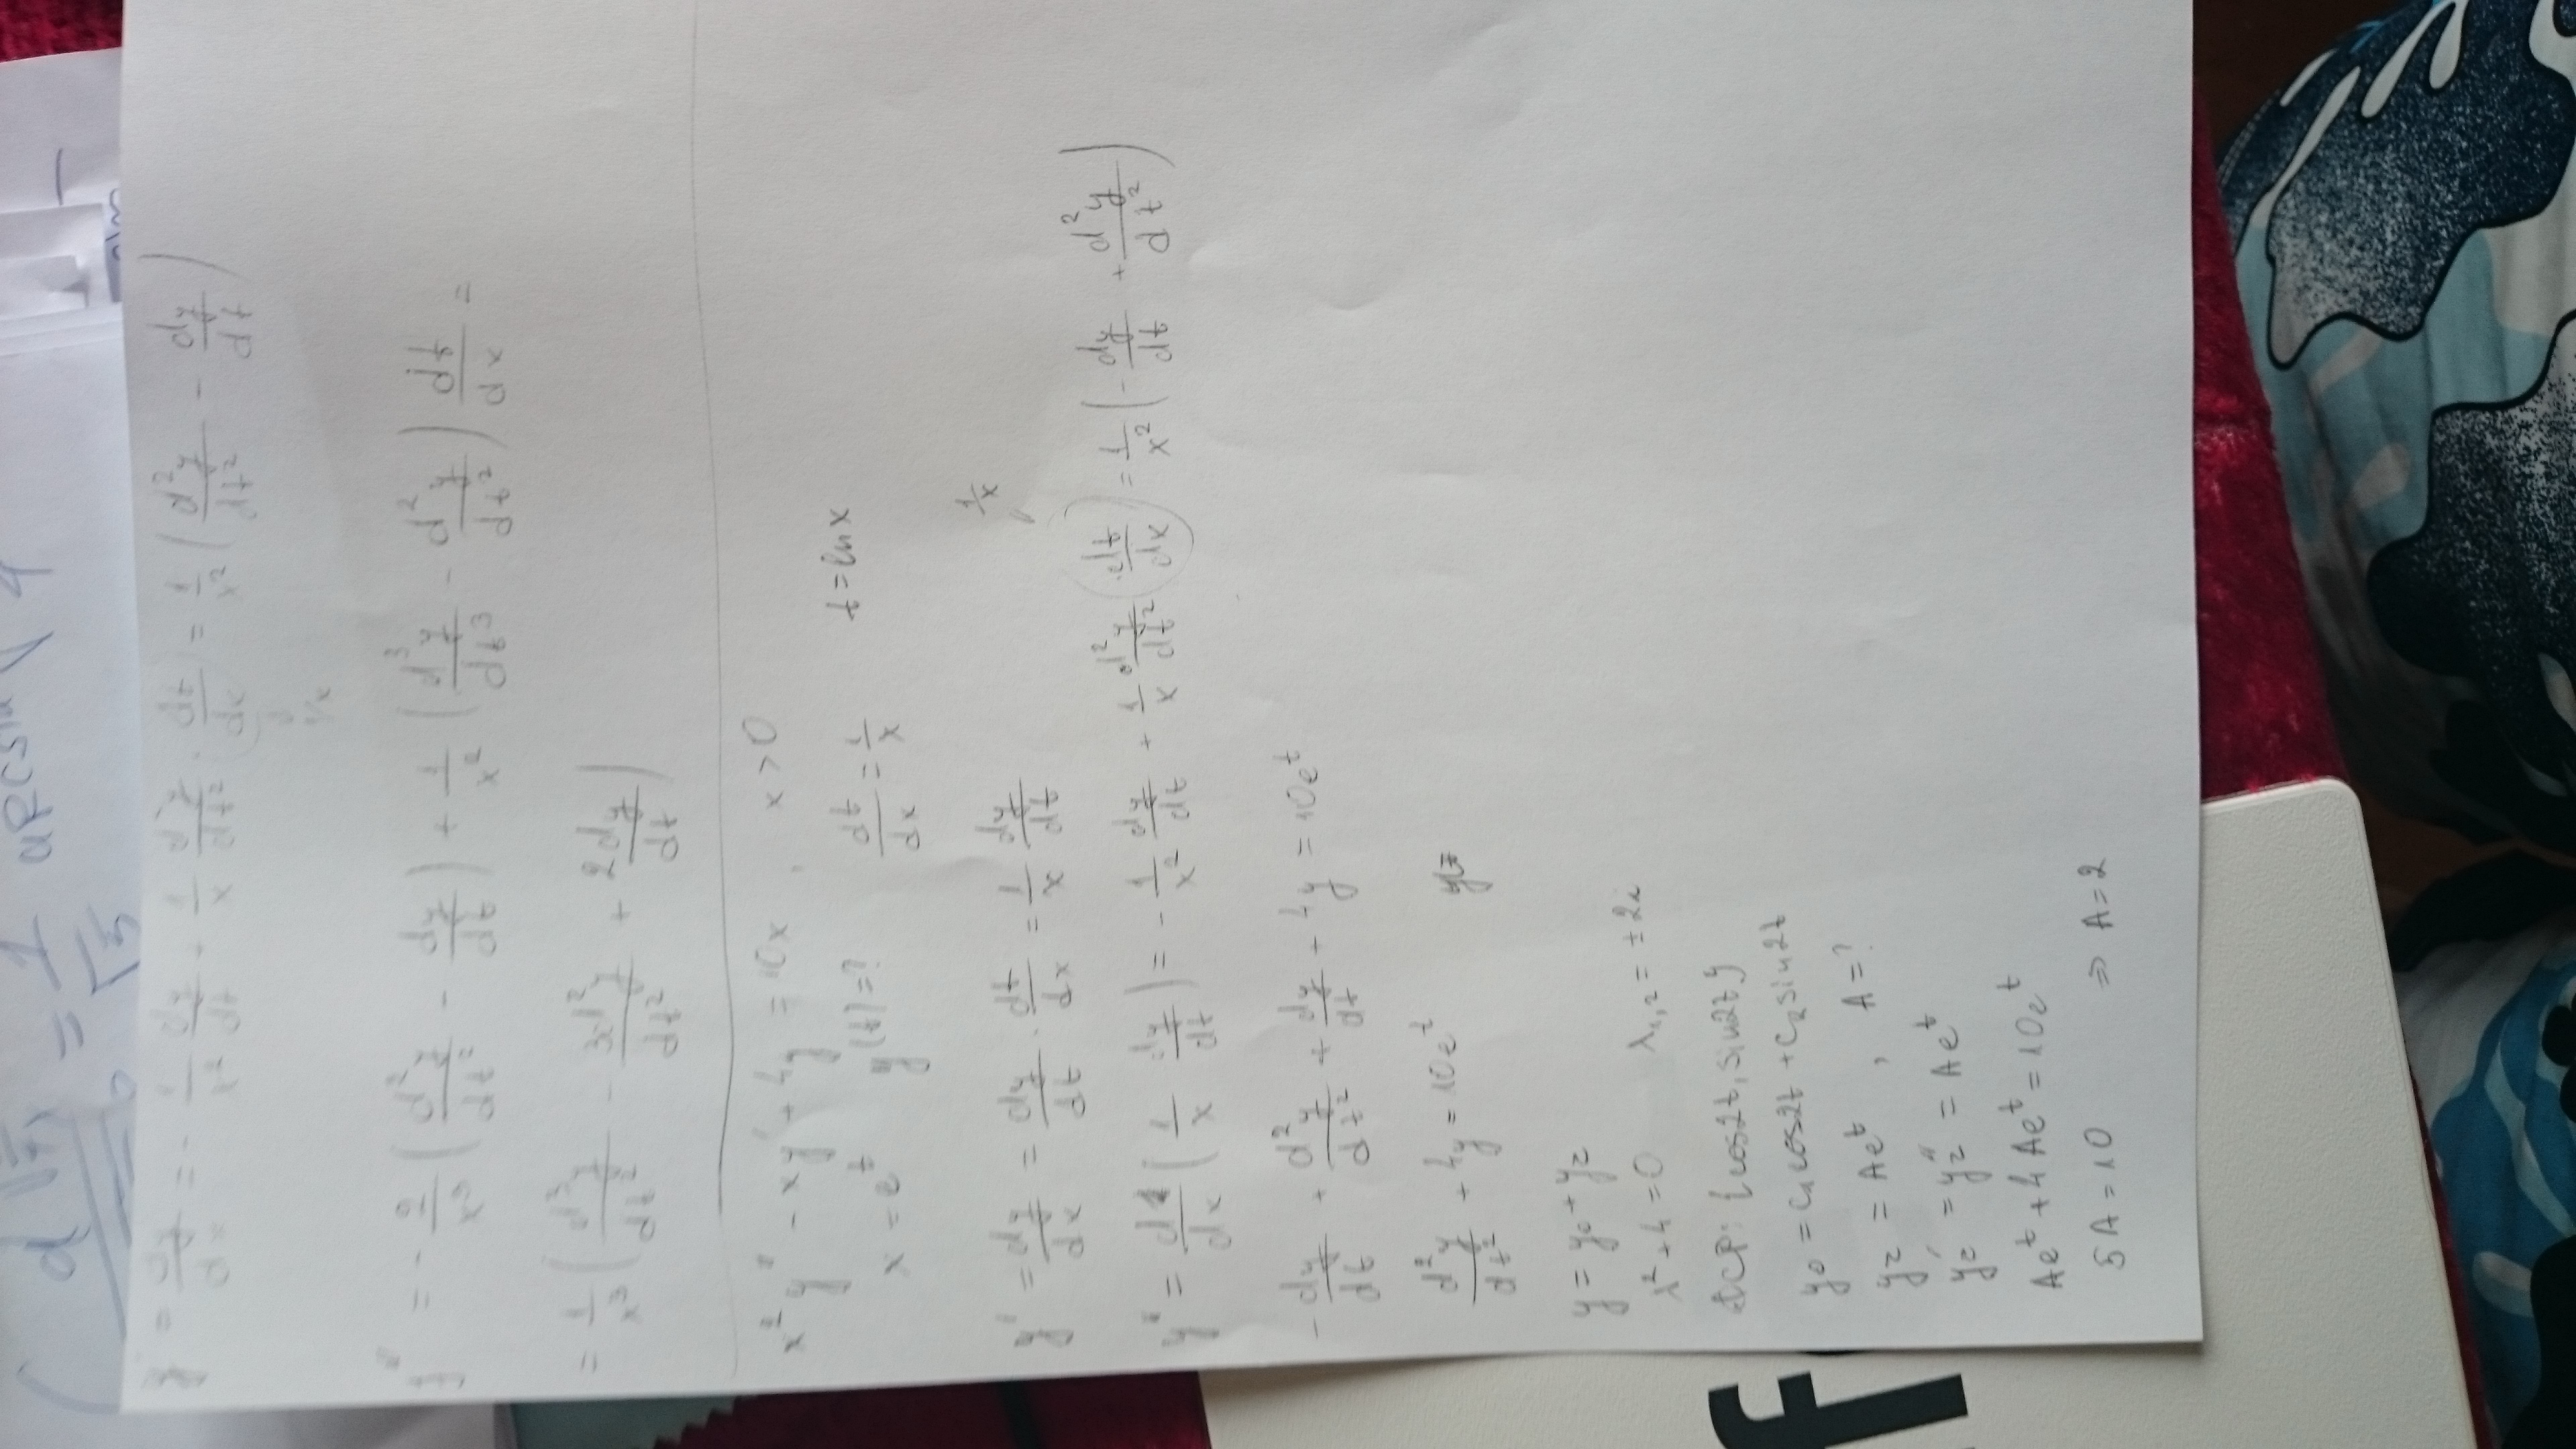 y'' = dy'/dx = -1/x² dy/dt + 1/x d²y/dt² · dt/dx = 1/x² (d²y/dt² - dy/dt)
1/x
y''' = -2/x³ (d²y/dt² - dy/dt) + 1/x² (d³y/dt³ - d²y/dt²) dt/dx =
= 1/x³ (d³y/dt³ - 3d²y/dt² + 2dy/dt)
x²y'' - xy' + 4y = 10x , x > 0
x = e^t y(t) = ? dt/dx = 1/x t = ln x
y' = dy/dx = dy/dt · dt/dx = 1/x dy/dt
1/x
y'' = d/dx (1/x dy/dt) = -1/x² dy/dt + 1/x d²y/dt² · dt/dx = 1/x² (-dy/dt + d²y/dt²)
-dy/dt + d²y/dt² + dy/dt + 4y = 10e^t
d²y/dt² + 4y = 10e^t
y = y₀ + yz
λ² + 4 = 0 λ₁,₂ = ± 2i
ФСР: {cos2t, sin2t}
y₀ = c₁cos2t + c₂sin2t
yz = Ae^t , A = ?
yz' = yz'' = Ae^t
Ae^t + 4Ae^t = 10e^t
5A = 10 ⇒ A = 2
arcsin
1/√3
f